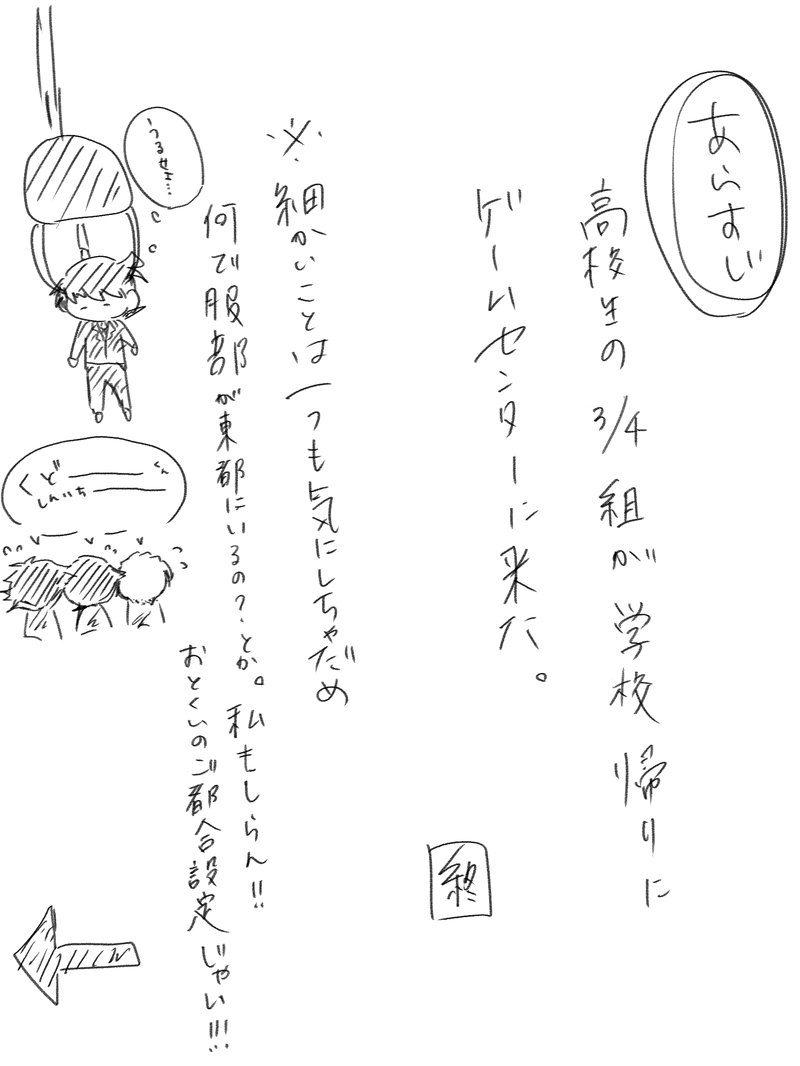 あらすじ
高校生の3/4組が学校帰りに
ゲームセンターに来た。
終
※細かいことは1つも気にしちゃだめ
何で服部が東都にいるの?とか。私もしらん!!
おとくいのご都合設定じゃい!!!
うるせぇ…
くどーーくん
しんいちーー